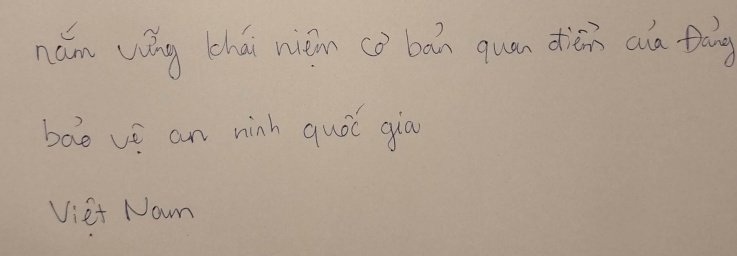 nắm vững khái niệm cơ bản quan điểm của Đảng
bảo vệ an ninh quốc gia
Việt Nam